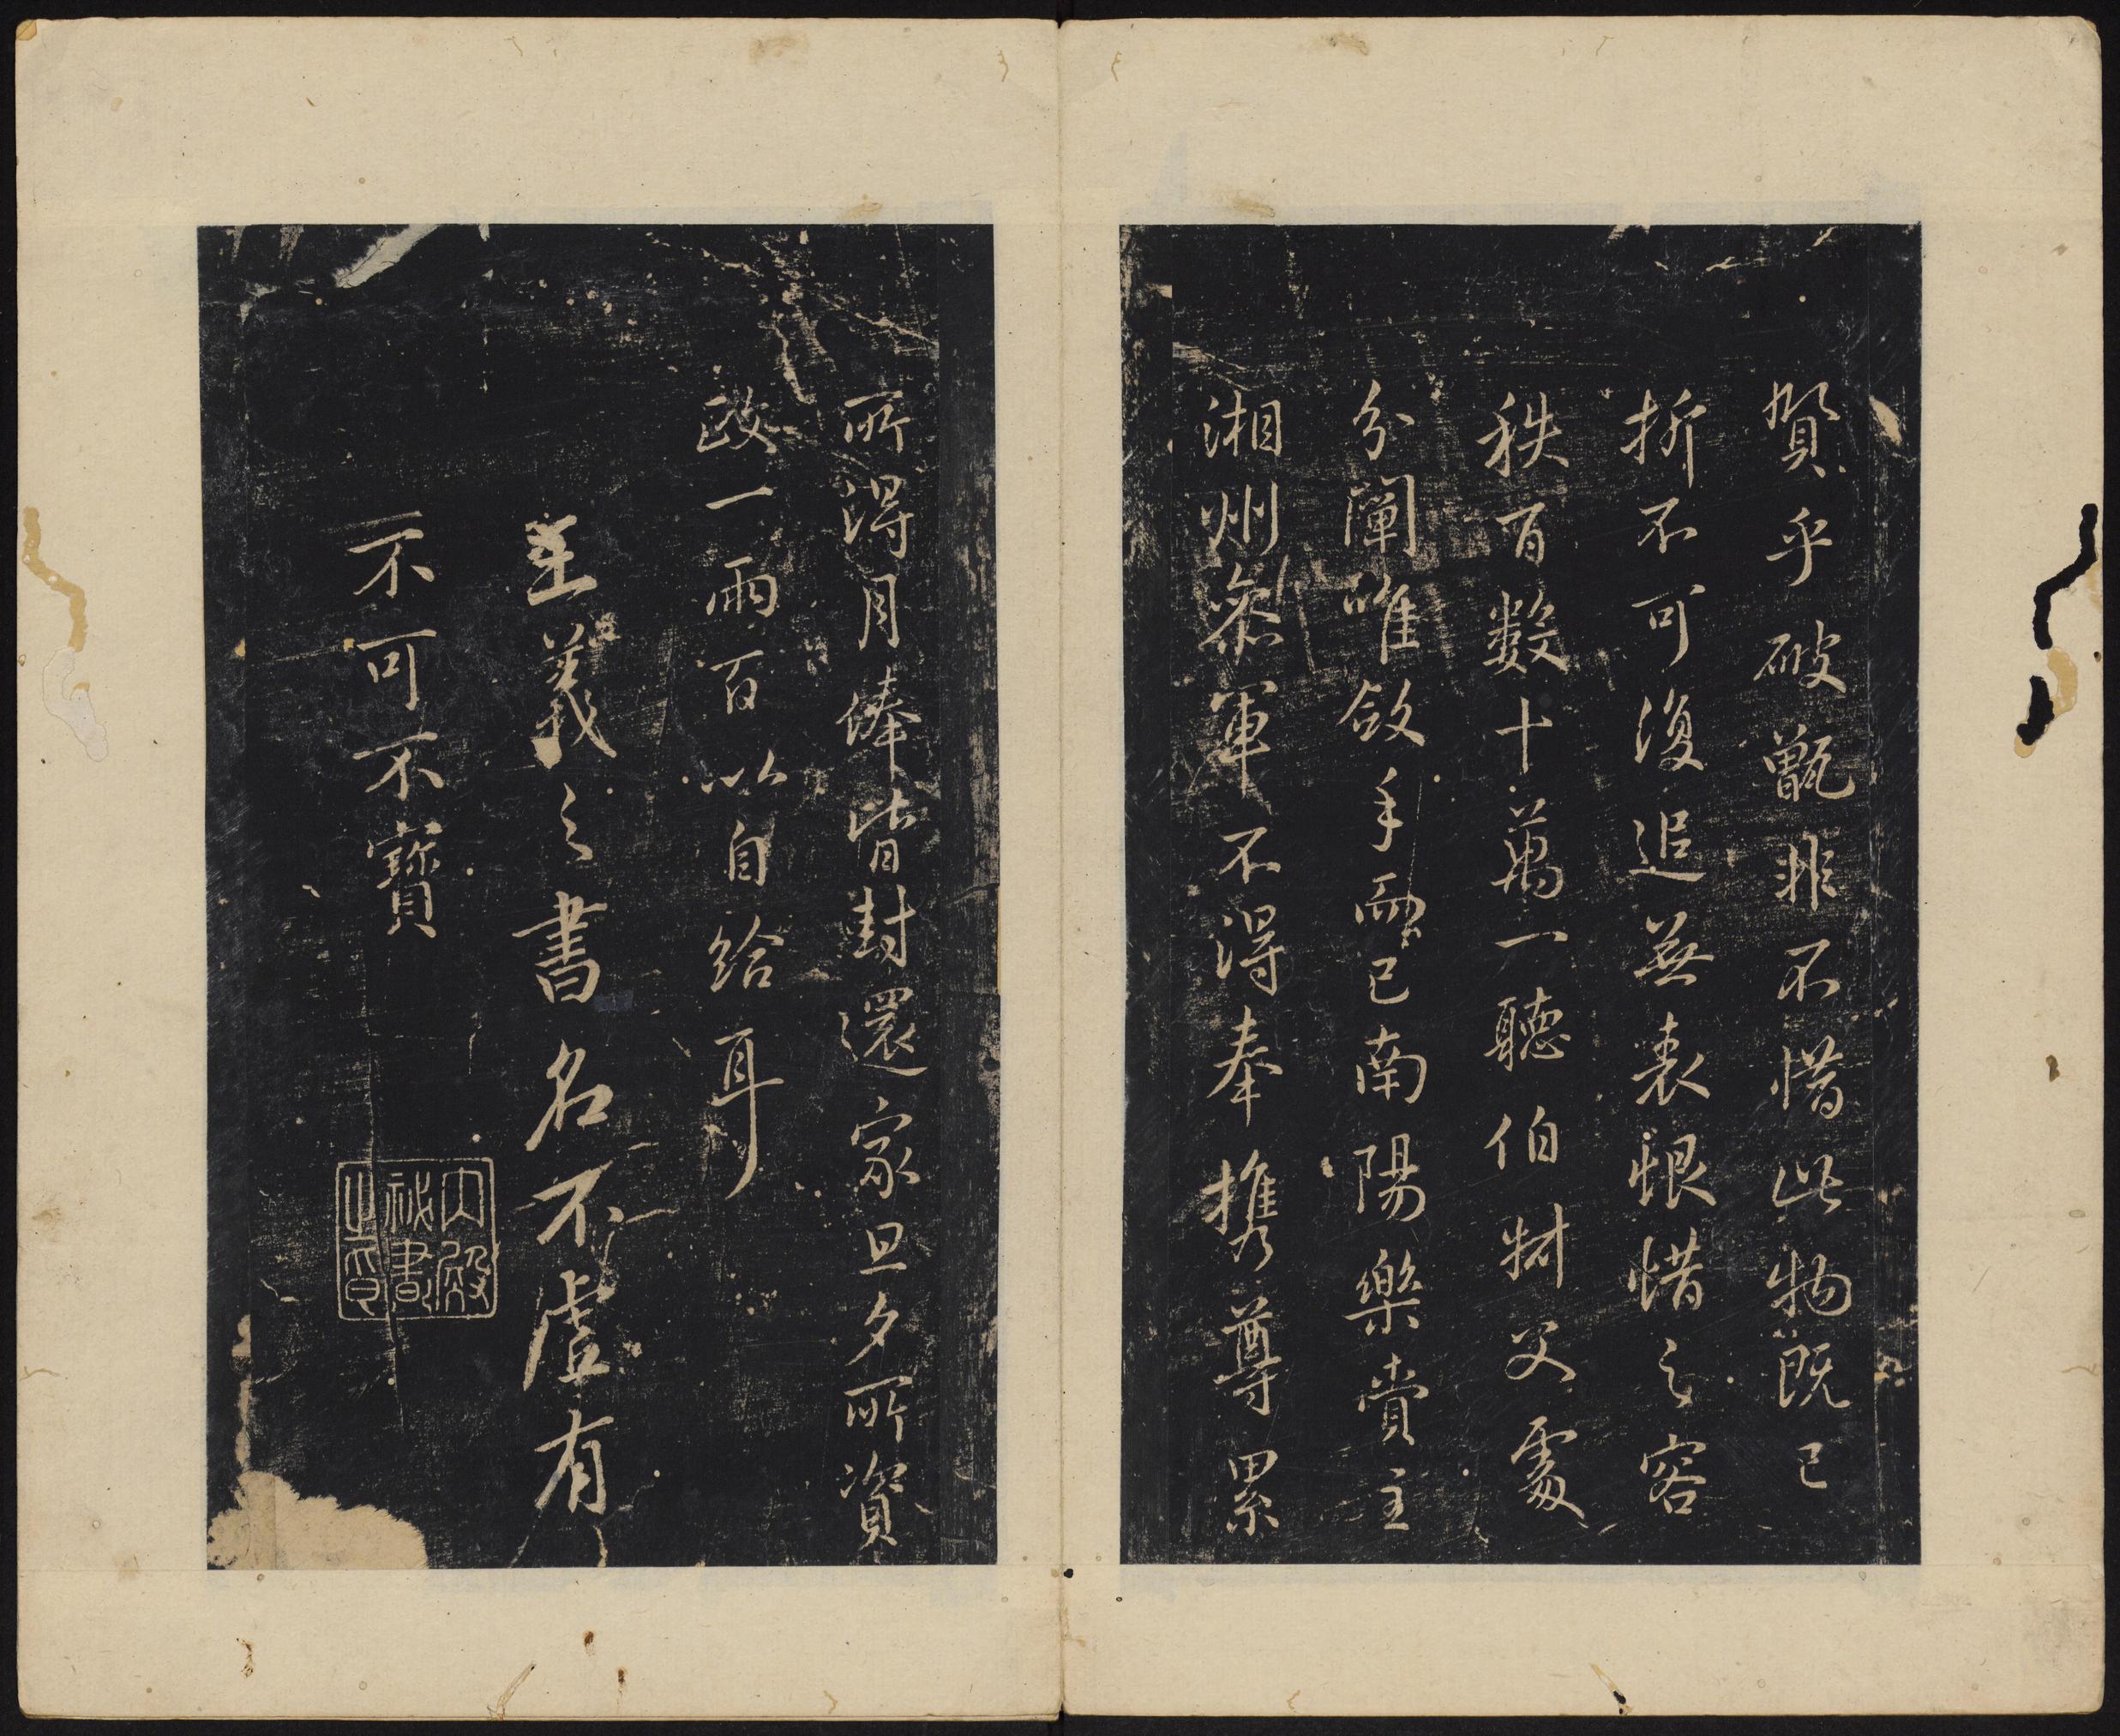 賀乎破甑非不惜此物既已
折不可復追無表恨惜之容
秩百數十萬一聽伯財父處
分闡唯斂手而已南陽樂賞主
湘州參軍不得奉攜尊累
所得月俸皆封還家旦夕所資
政一兩百以自給耳
王羲之書名不虛有
不可不寶
內殿
祕書
之印